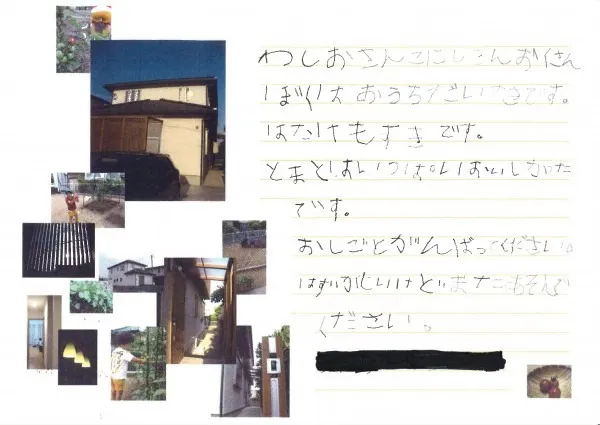 わしおさんこにしさんおくさん
ぼくはおうちだいすきです。
はたけもすきです。
とまといっぱいおいしかった
です。
おしごとがんばってください。
はずかしいけどまたあそんで
ください。